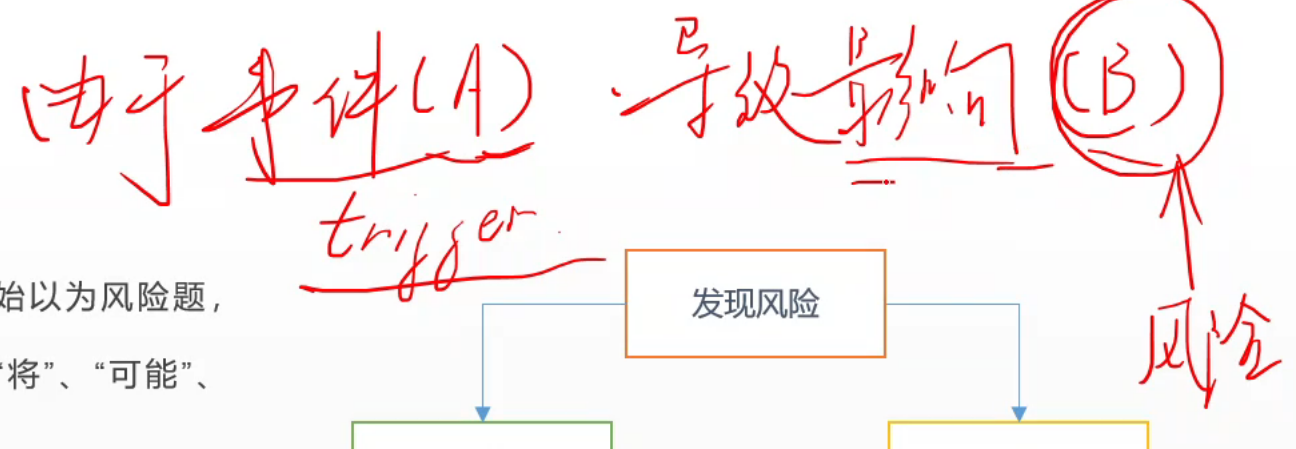 由于事件(A) 导致影响(B)
trigger
始以为风险题，
发现风险
风险
“将”、“可能”、